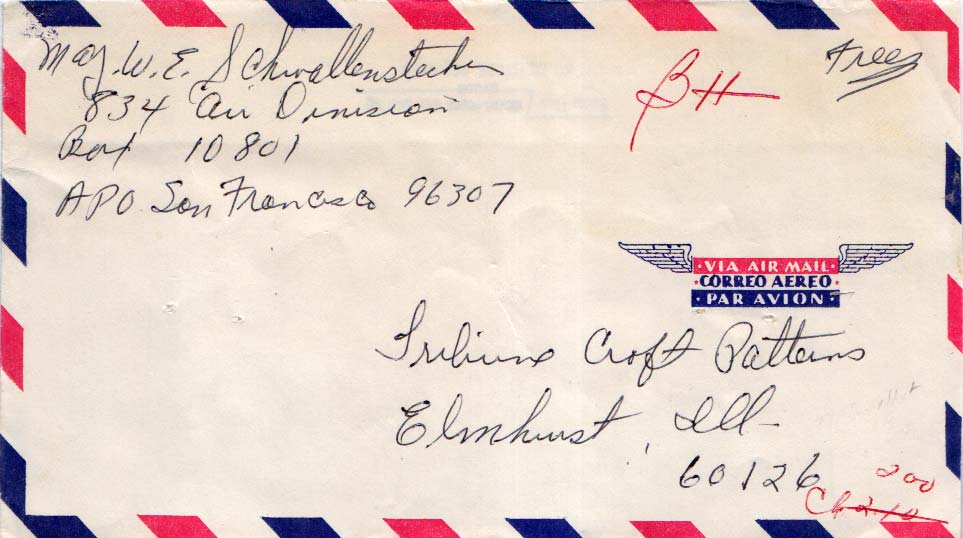 Maj. W. E. Schwallenstecker
834 Air Division
Box 10801
APO San Francisco 96307
BH
Free
VIA AIR MAIL
CORREO AEREO
PAR AVION
Tribune Craft Patterns
Elmhurst, Ill
60126
200
Ck 2.10